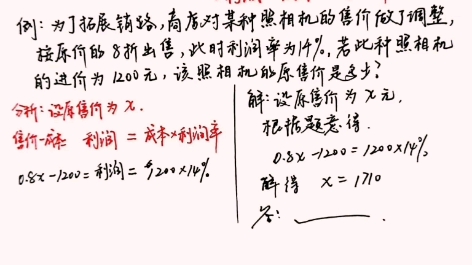 例:为了拓展销路,商店对某种照相机的售价做了调整,
按原价的8折出售,此时利润率为14%.若此种照相机
的进价为1200元,该照相机的原售价是多少?
分析:设原售价为x.
售价-成本 利润=成本×利润率
0.8x-1200=利润=1200×14%
解:设原售价为x元,
根据题意得.
0.8x-1200=1200×14%
解得 x=1710
答: